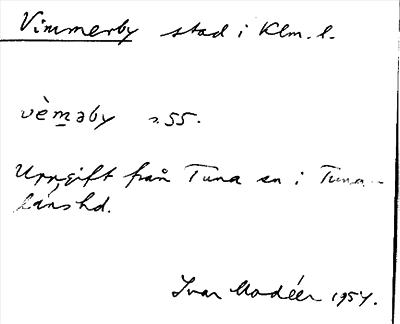 Vimmerby stad i Klm. l.
vèm̲əby s. 55.
Uppgift från Tuna sn i Tuna-
läns hd.
Ivar Modéer 1954.